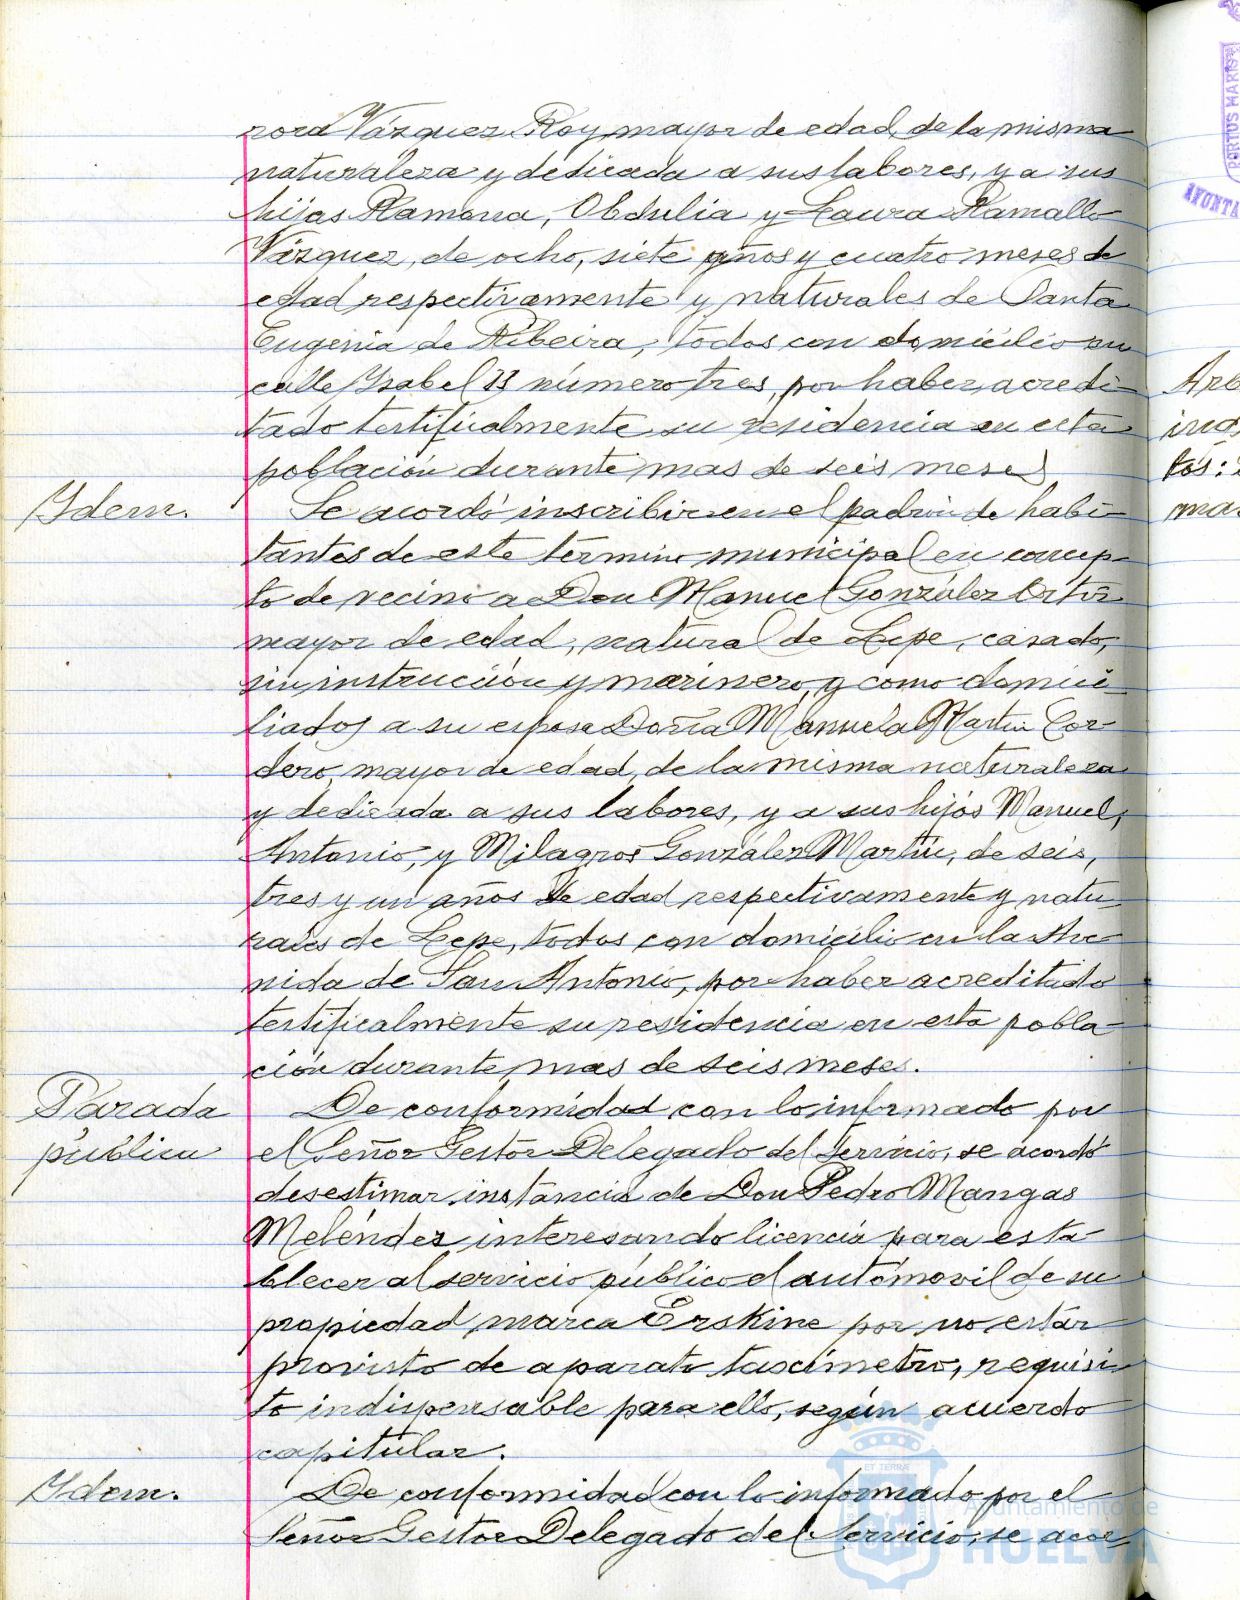 nora Vázquez Roy, mayor de edad, de la misma
naturaleza y dedicada a sus labores, y a sus
hijas Ramona, Obdulia y Laura Ramallo
Vázquez, de ocho, siete años y cuatro meses de
edad respectivamente y naturales de Santa
Eugenia de Ribeira, todos con domicilio en
calle Ysabel II número tres, por haber acredi-
tado tertifícalmente su residencia en esta
población durante mas de seis meses
Ydem.
Se acordó inscribir en el padrón de habi-
tantes de este término municipal en concep-
to de vecino a Don Manuel González Ortiz
mayor de edad, natural de Lepe, casado,
sin instrucción y marinero, y como domici-
liados a su esposa Doña Manuela Martín Cor-
dero, mayor de edad, de la misma naturaleza
y dedicada a sus labores, y a sus hijos Manuel,
Antonio, y Milagros González Martín, de seis,
tres y un años de edad respectivamente y natu-
rales de Lepe, todos con domicilio en la Ave-
nida de San Antonio, por haber acreditado
tertifícalmente su residencia en esta pobla-
ción durante mas de seis meses.
Parada
pública
De conformidad con lo informado por
el Señor Gestor Delegado del Servicio, se acordó
desestimar instancia de Don Pedro Mangas
Meléndez interesando licencia para esta-
blecer al servicio público el automovil de su
propiedad marca Erskine por no estar
provisto de aparato tascímetro, requisi-
to indispensable para ello, según acuerdo
capitular.
Ydem.
De conformidad con lo informado por el
Señor Gestor Delegado del Servicio, se acor
Arb
ing
tos:
mas
PORTUS MARIS
AYUNTA
ET TERRÆ
Ayuntamiento de
HUELVA